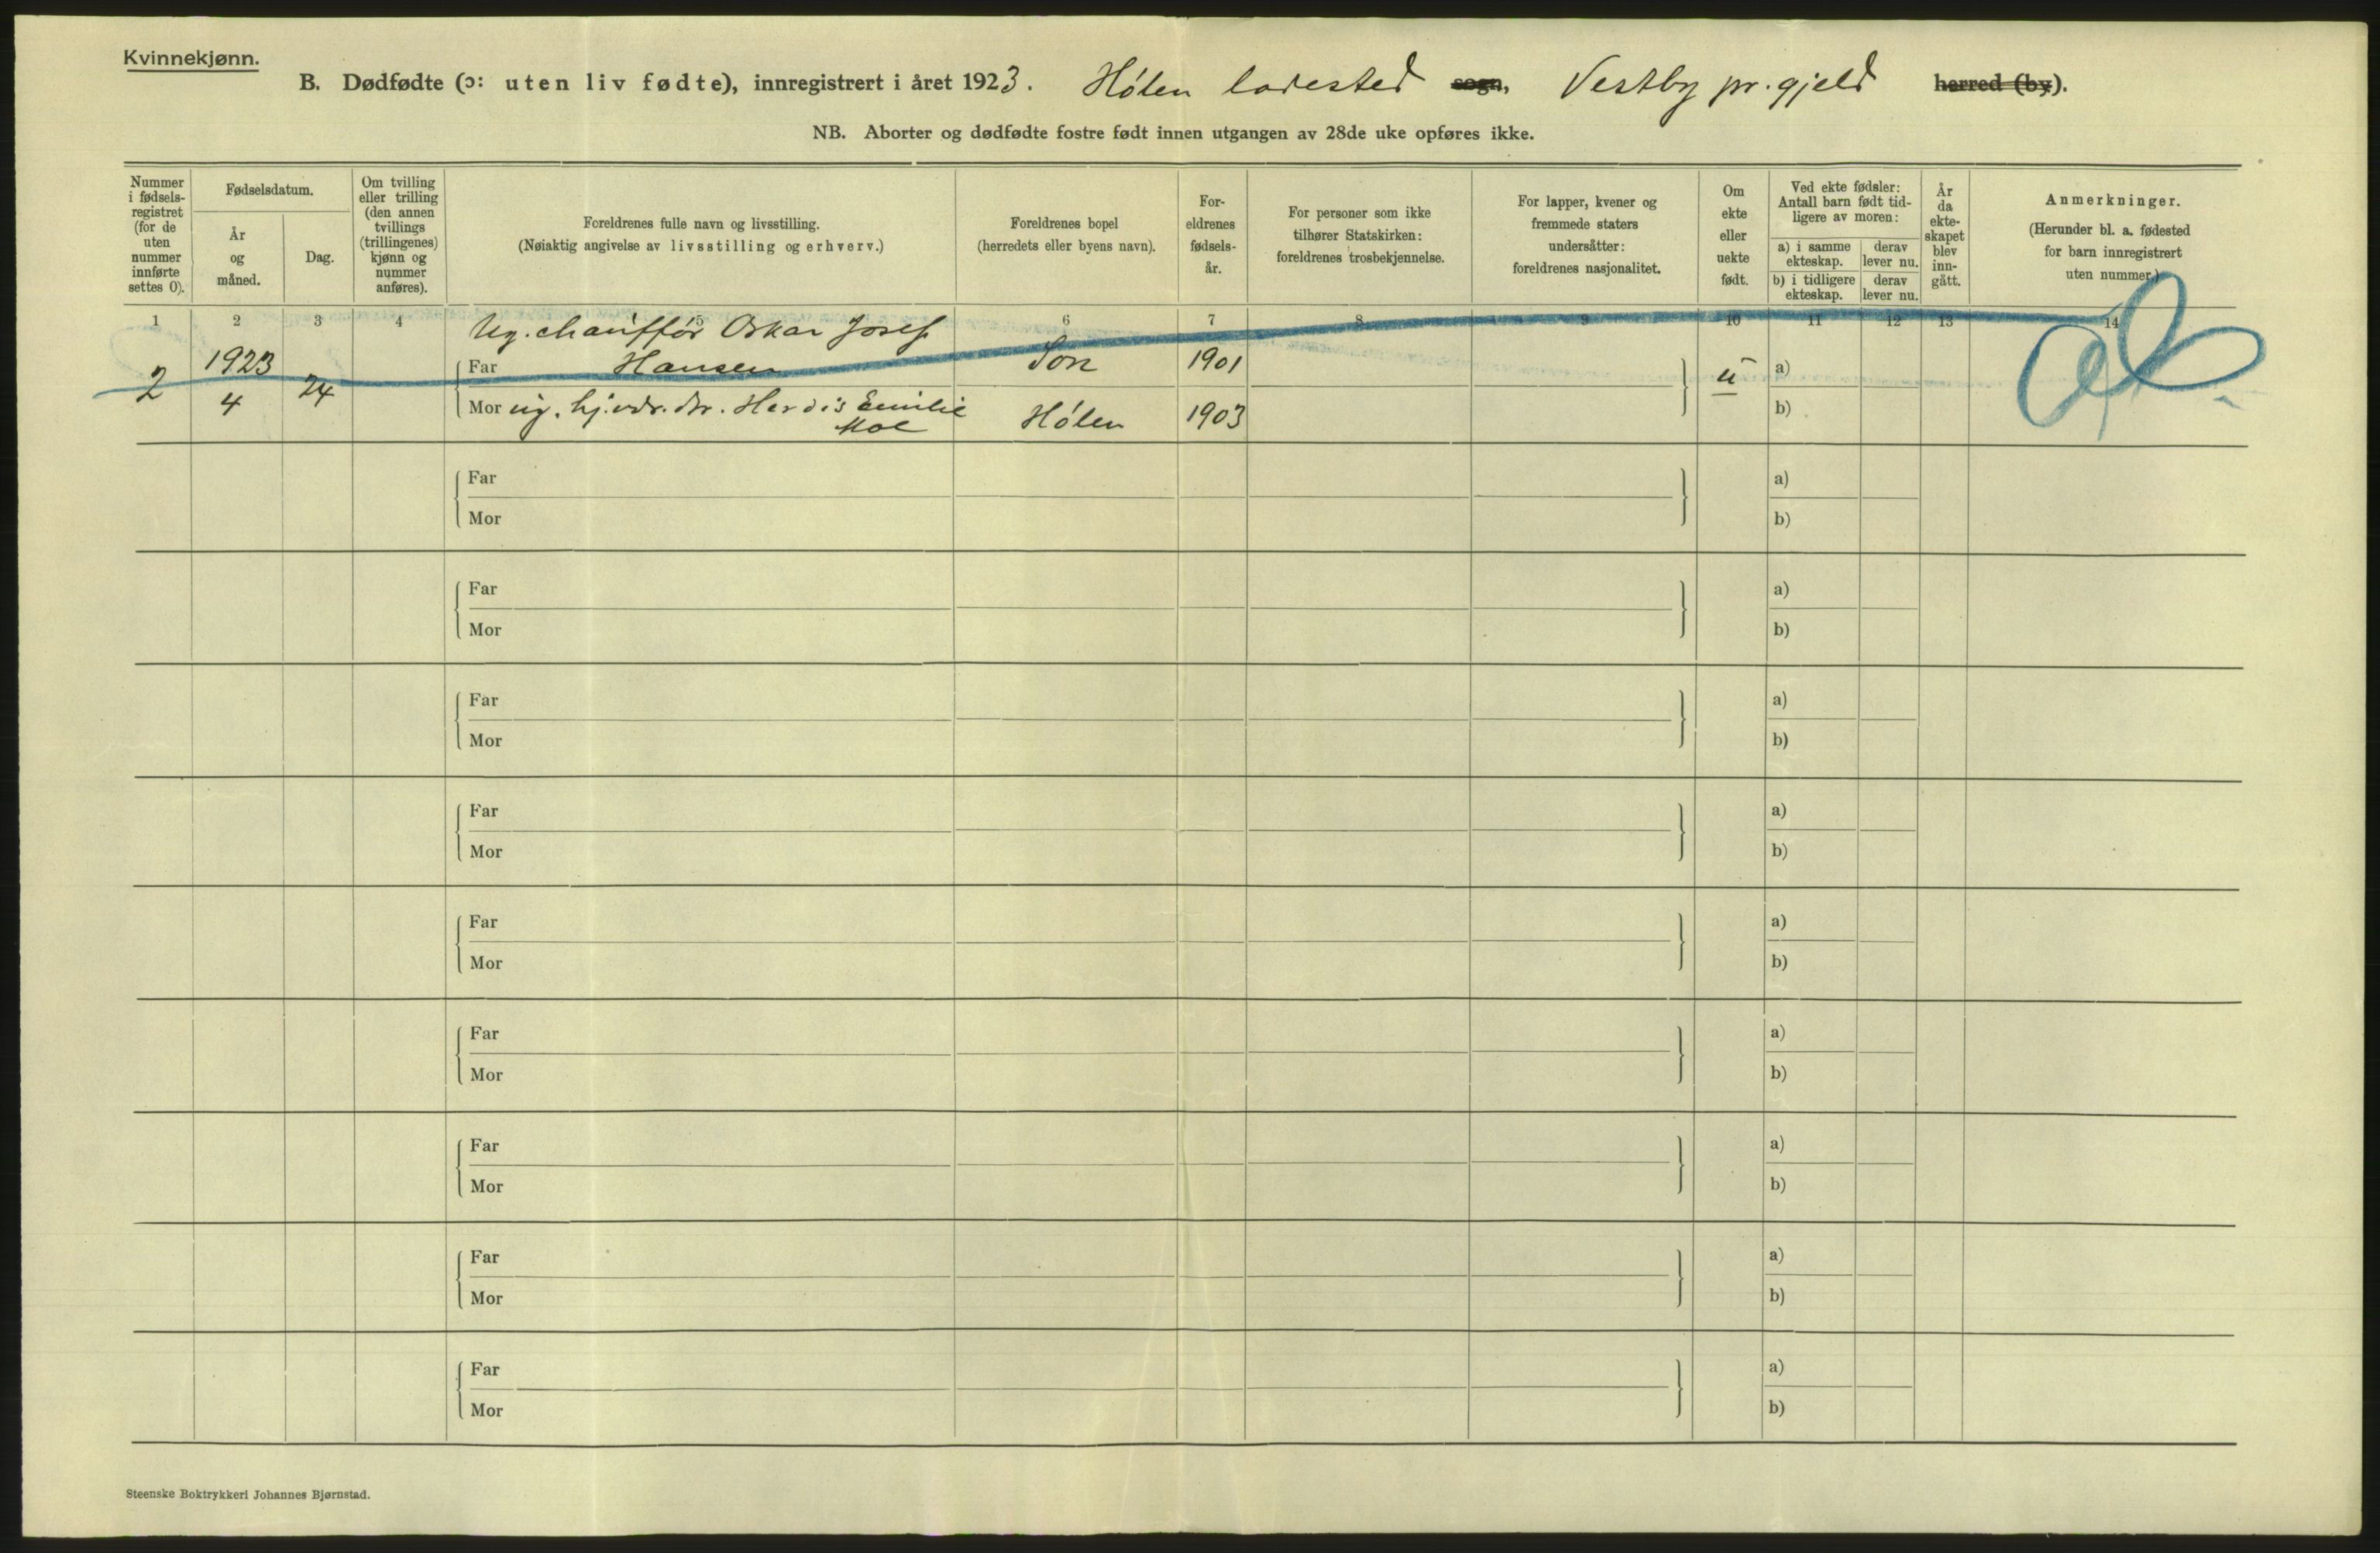 Kvinnekjønn.
B. Dødfødte (ɔ: uten liv fødte), innregistrert i året 1923. Hølen ladested sogn, Vestby pr.gjeld herred (by).
NB. Aborter og dødfødte fostre født innen utgangen av 28de uke opføres ikke.
Nummer
i fødsels-
registret
(for de
uten
nummer
innførte
settes 0).
Fødselsdatum.
År
og
måned.
Dag.
Om tvilling
eller trilling
(den annen
tvillings
(trillingenes)
kjønn og
nummer
anføres).
Foreldrenes fulle navn og livsstilling.
(Nøiaktig angivelse av livsstilling og erhverv.)
Foreldrenes bopel
(herredets eller byens navn).
For-
eldrenes
fødsels-
år.
For personer som ikke
tilhører Statskirken:
foreldrenes trosbekjennelse.
For lapper, kvener og
fremmede staters
undersåtter:
foreldrenes nasjonalitet.
Om
ekte
eller
uekte
født.
Ved ekte fødsler:
Antall barn født tid-
ligere av moren:
a) i samme
ekteskap.
derav
lever nu.
b) i tidligere
ekteskap.
derav
lever nu.
År
da
ekte-
skapet
blev
inn-
gått.
Anmerkninger.
(Herunder bl. a. fødested
for barn innregistrert
uten nummer.)
1 2 3 4 5 6 7 8 9 10 11 12 13 14
Ug. chauffør Oskar Josef
2 1923 24 Far Hansen Son 1901 u a)
4 Mor ug. hj.vær. dtr. Herdis Emilie Hølen 1903 b)
Moe
Far a)
Mor b)
Far a)
Mor b)
Far a)
Mor b)
Far a)
Mor b)
Far a)
Mor b)
Far a)
Mor b)
Far a)
Mor b)
Far a)
Mor b)
Far a)
Mor b)
Steenske Boktrykkeri Johannes Bjørnstad.